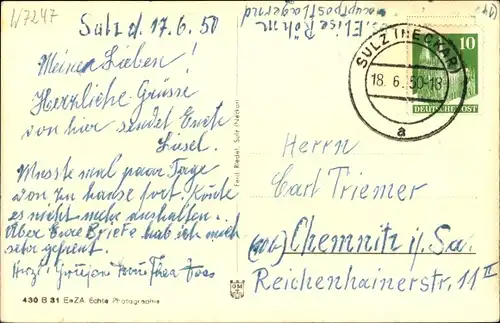 1/7247
Sulz d. 17.6.50
Elise Röhm
hauptpostlagernd
Meine Lieben!
Herzliche Grüsse
von hier sendet Eure
Liesel.
Musste mal paar Tage
von zu hause fort. Konnte
es nicht mehr aushalten.
Über Eure Briefe hab ich mich
sehr gefreut.
Herzl. Grüsse
430 B 31 EeZA Echte Photographie
Ferd. Riedel, Sulz (Neckar)
SULZ (NECKAR)
18.6.50-18
a
10
DEUTSCHE POST
Herrn
Carl Triemer
Chemnitz i. Sa.
Reichenhainerstr. 11 II